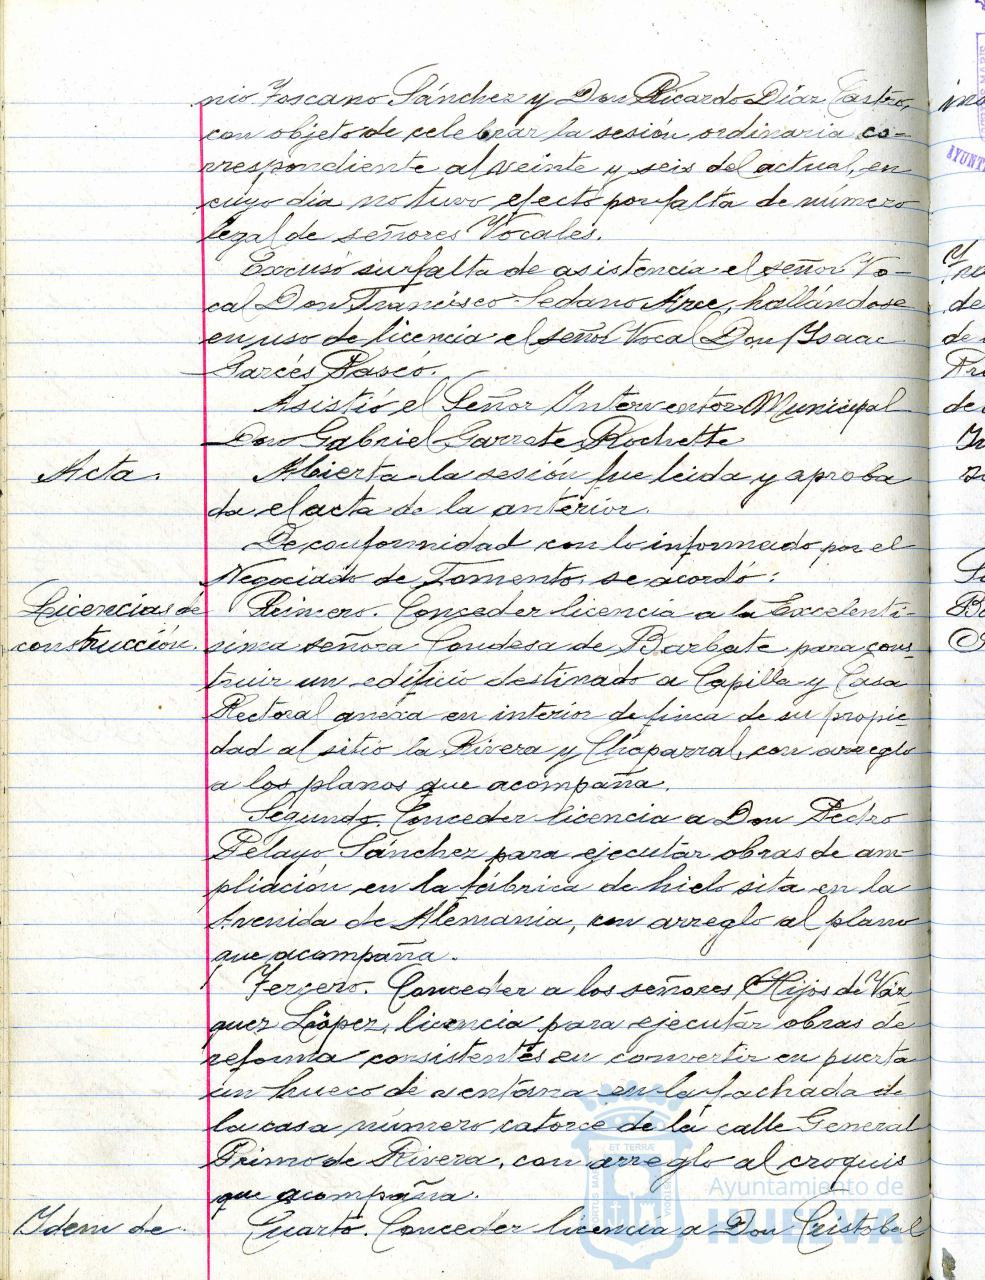 nio Toscano Sánchez y Don Ricardo Díaz Castro,
con objeto de celebrar la sesión ordinaria co-
rrespondiente al veinte y seis del actual, en
cuyo día no tuvo efecto por falta de número
legal de señores Vocales.
Excusó su falta de asistencia el señor Vo-
cal Don Francisco Sedano Arce, hallándose
en uso de licencia el señor Vocal Don Ysaac
Garcés Pascó.
Asistió el Señor Interventor Municipal
Don Gabriel Garrate Rochette
Acta.
Abierta la sesión fue leida y aproba
da el acta de la anterior.
De conformidad con lo informado por el
Negociado de Fomento, se acordó:
Licencias de
construcción.
Primero. Conceder licencia a la Excelentí-
sima señora Condesa de Barbate para cons-
truir un edificio destinado a Capilla y Casa
Rectoral anexa en interior de finca de su propie-
dad al sitio la Rivera y Chaparral, con arreglo
a los planos que acompaña.
Segundo. Conceder licencia a Don Pedro
Pelayo Sánchez para ejecutar obras de am-
pliación en la fábrica de hielo sita en la
Avenida de Alemania, con arreglo al plano
que acompaña.
Tercero. Conceder a los señores Hijos de Váz-
quez López, licencia para ejecutar obras de
reforma consistentes en convertir en puerta
un hueco de ventana en la fachada de
la casa número catorce de la calle General
Primo de Rivera, con arreglo al croquis
que acompaña.
Idem de
Cuarto. Conceder licencia a Don Cristobal
ET TERRÆ
Ayuntamiento de
HUELVA